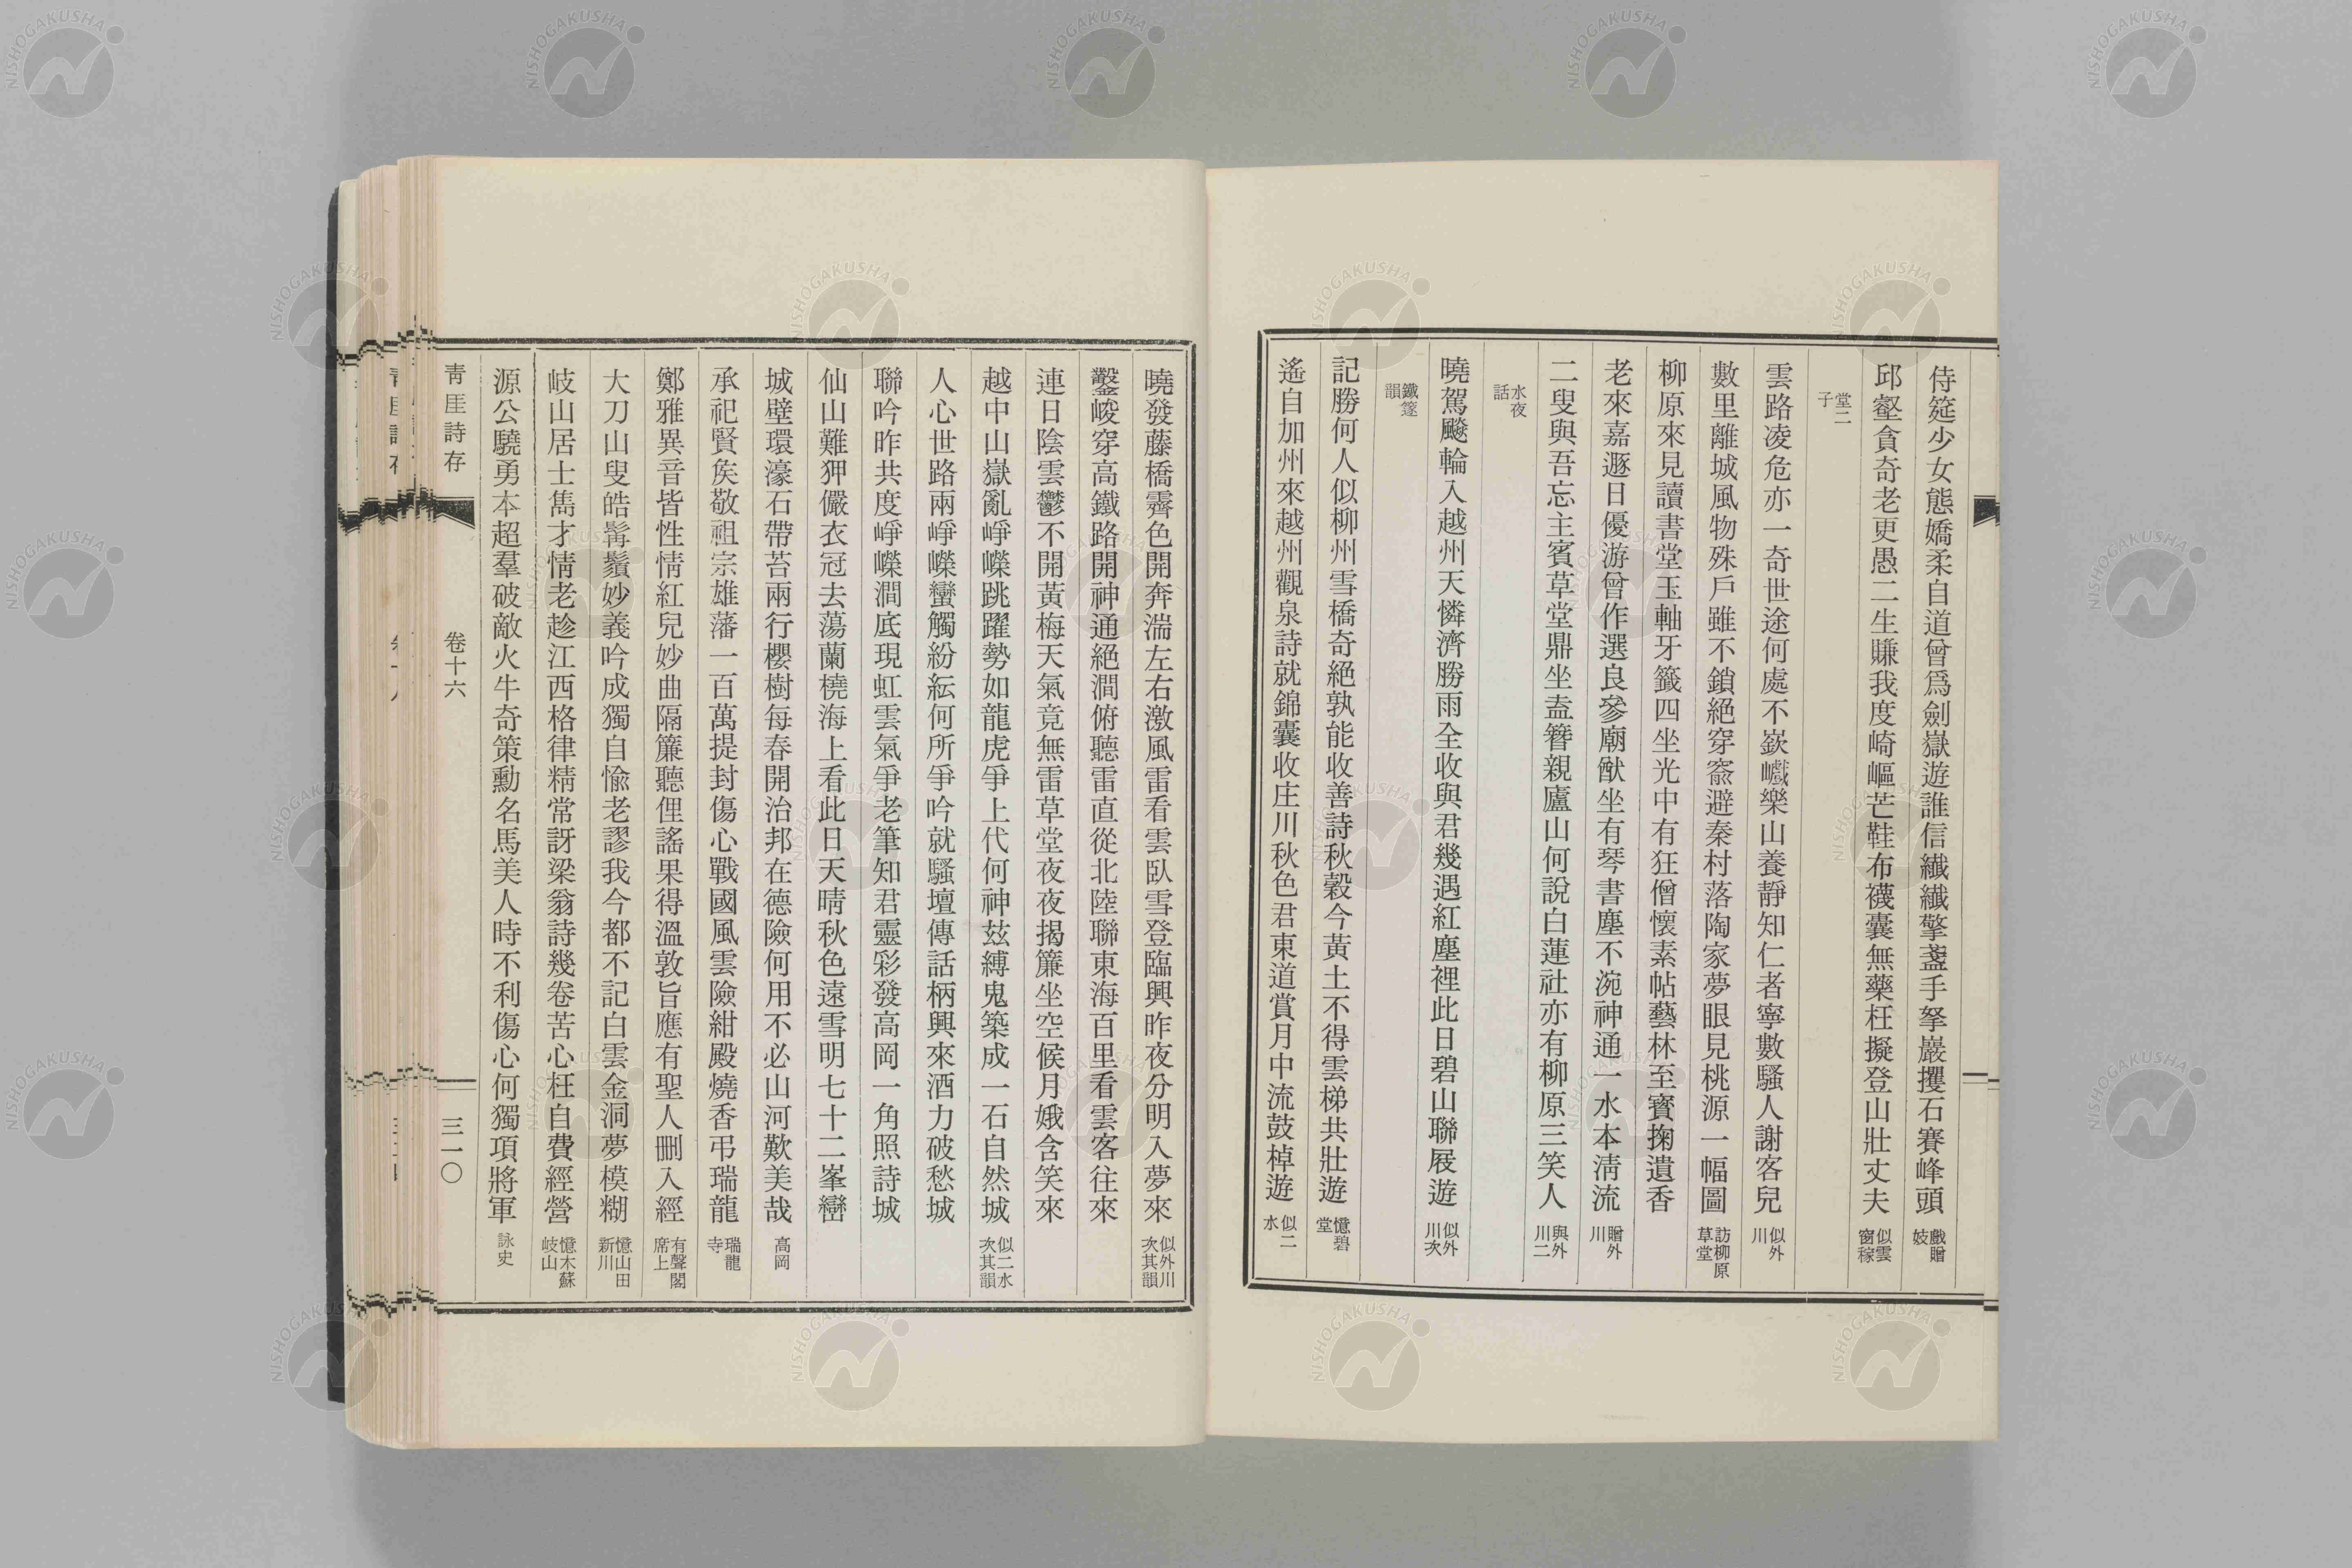 侍筵少女態嬌柔自道曾爲劍嶽遊誰信纖纖擎盞手拏巖攫石賽峰頭 戲贈妓
邱壑貪奇老更愚二生賺我度崎嶇芒鞋布襪囊無藥枉擬登山壯丈夫 似雲窗稼
堂二子
雲路凌危亦一奇世途何處不嶔巇樂山養靜知仁者寧數騷人謝客兒 似外川
數里離城風物殊戶雖不鎖絕穿窬避秦村落陶家夢眼見桃源一幅圖 訪柳原草堂
柳原來見讀書堂玉軸牙籤四坐光中有狂僧懷素帖藝林至寶掬遺香
老來嘉遯日優游曾作選良參廟猷坐有琴書塵不涴神通一水本淸流 贈外川
二叟與吾忘主賓草堂鼎坐盍簪親廬山何說白蓮社亦有柳原三笑人 與外川二
水夜話
曉駕飇輪入越州天憐濟勝雨全收與君幾遇紅塵裡此日碧山聯展遊 似外川次
鐵篴韻
記勝何人似柳州雪橋奇絕孰能收善詩秋穀今黃土不得雲梯共壯遊 憶碧堂
遙自加州來越州觀泉詩就錦囊收庄川秋色君東道賞月中流鼓棹遊 似二水
曉發藤橋霽色開奔湍左右激風雷看雲臥雪登臨興昨夜分明入夢來 似外川次其韻
鑿峻穿高鐵路開神通絕澗俯聽雷直從北陸聯東海百里看雲客往來
連日陰雲鬱不開黃梅天氣竟無雷草堂夜夜揭簾坐空候月娥含笑來
越中山嶽亂崢嶸跳躍勢如龍虎爭上代何神玆縛鬼築成一石自然城 似二水次其韻
人心世路兩崢嶸蠻觸紛紜何所爭吟就騷壇傳話柄興來酒力破愁城
聯吟昨共度崢嶸澗底現虹雲氣爭老筆知君靈彩發高岡一角照詩城
仙山難狎儼衣冠去蕩蘭橈海上看此日天晴秋色遠雪明七十二峯巒
城壁環濠石帶苔兩行櫻樹每春開治邦在德險何用不必山河歎美哉 高岡
承祀賢矦敬祖宗雄藩一百萬提封傷心戰國風雲險紺殿燒香弔瑞龍 瑞龍寺
鄭雅異音皆性情紅兒妙曲隔簾聽俚謠果得溫敦旨應有聖人刪入經 有聲閣席上
大刀山叟皓髯鬚妙義吟成獨自愉老謬我今都不記白雲金洞夢模糊 憶山田新川
岐山居士雋才情老趁江西格律精常訝梁翁詩幾卷苦心枉自費經營 憶木蘇岐山
源公驍勇本超羣破敵火牛奇策勳名馬美人時不利傷心何獨項將軍 詠史
靑厓詩存 卷十六 三一〇